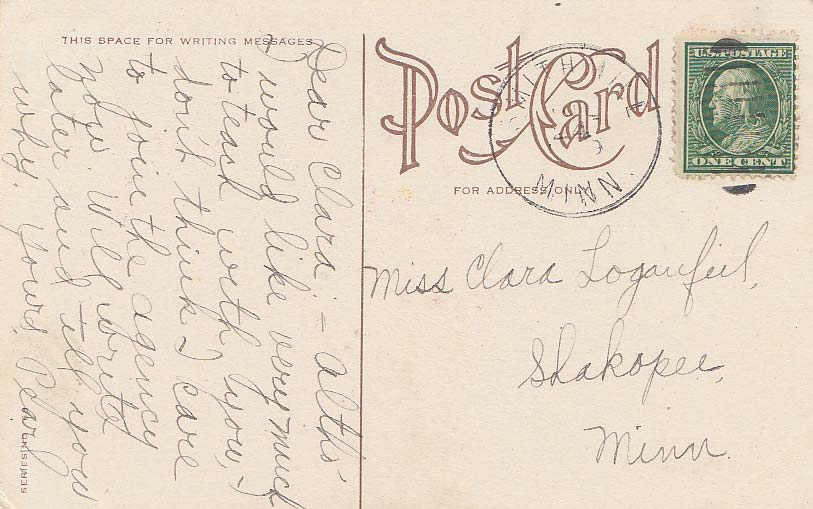 THIS SPACE FOR WRITING MESSAGES
Dear Clara:- Altho'
I would like very much
to teach with you, I
don't think I care
to join the agency
now. Will write
later and tell you
why. Yours, Pearl
SERIES NO.
Post Card
FOR ADDRESS ONLY
MINN.
U.S. POSTAGE
ONE CENT
Miss Clara
Shakopee,
Minn.